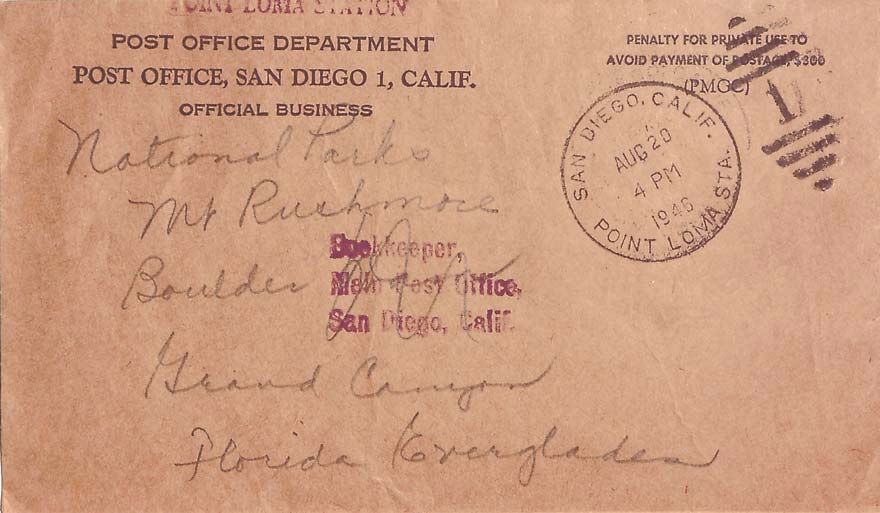 POINT LOMA STATION
POST OFFICE DEPARTMENT
POST OFFICE, SAN DIEGO 1, CALIF.
OFFICIAL BUSINESS
PENALTY FOR PRIVATE USE TO
AVOID PAYMENT OF POSTAGE, $300
(PMGC)
1
SAN DIEGO, CALIF.
AUG 20
4 PM
1946
POINT LOMA STA.
National Parks
Mt Rushmore
Bookkeeper,
Boulder Dam
Main Post Office,
San Diego, Calif.
Grand Canyon
Florida Everglades